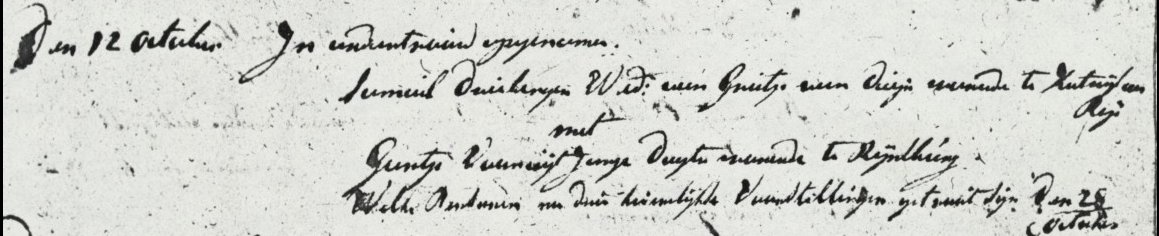 Den 12 October In ondertrouw opgenomen.
Duivenbergen Wed: van Grietje van Duijn wonende te Katwijk aan
Rijn
met
Grietje Jonge Dogter wonende te Rijnsburg
Welke Persoonen na drie kerkelijke Voorstellingen getrouwt sijn Den 28
October